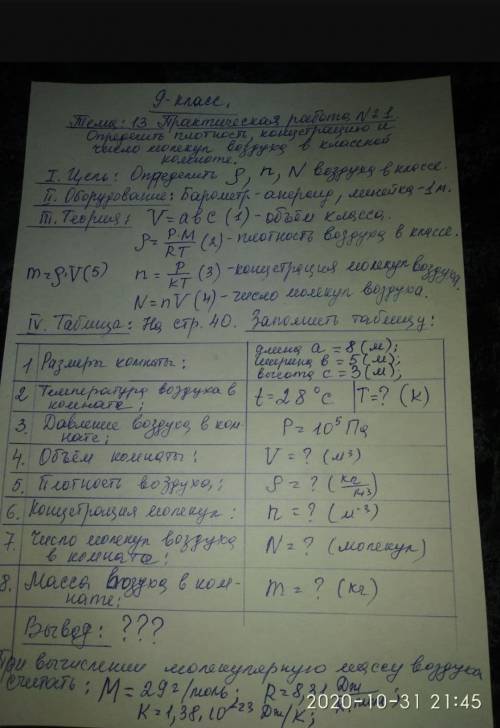 9-класс.
Тема: 13. Практическая работа №21
Определить плотность, концстрацию и
число молекул воздуха в классной
комнате.
I. Цель: Определить ρ, n, N воздуха в классе.
II. Оборудование: Барометр-анероид, линейка-1м.
III. Теория: V=abc (1)-объём класса.
ρ=P·M/RT (2)-плотность воздуха в классе.
m=ρ·V(5) n=P/KT (3)-концстрация молекул воздуха.
N=nV(4)-число молекул воздуха.
IV. Таблица: На стр. 40. Заполнить таблицу:
1 Размеры комнаты: длина a=8(м);
ширина b=5(м);
высота c=3(м);
2 Температура воздуха в комнате; t=28°C T=? (K)
3. Давление воздуха в ком-
нате; P=10⁵ Па
4. Объём комнаты: V=? (м³)
5. Плотность воздуха; ρ=? (кг/м³)
6. Концстрация молекул: n=? (м⁻³)
7. Число молекул воздуха
в комнате: N=? (молекул)
8. Масса воздуха в ком-
нате; m=? (кг)
Вывод: ???
При вычислении молекулярную массу воздуха
считать: M=29г/моль; R=8,31 Дж
K=1,38·10⁻²³ Дж/K;
2020-10-31 21:45